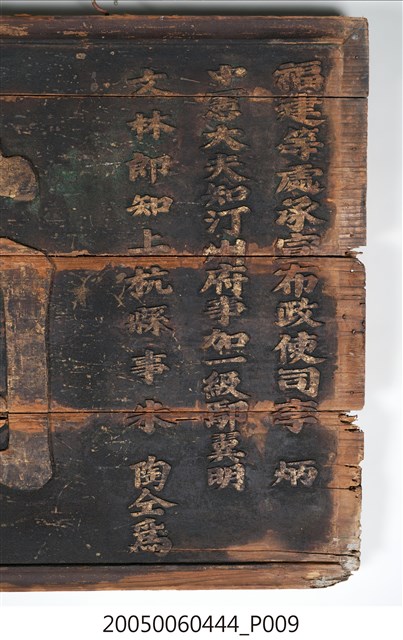 福建等處承宣布政使司李炳
中憲大夫知汀州府事加一級鄢翼明
文林郎知上杭縣事 陶仝為
20050060444_P009